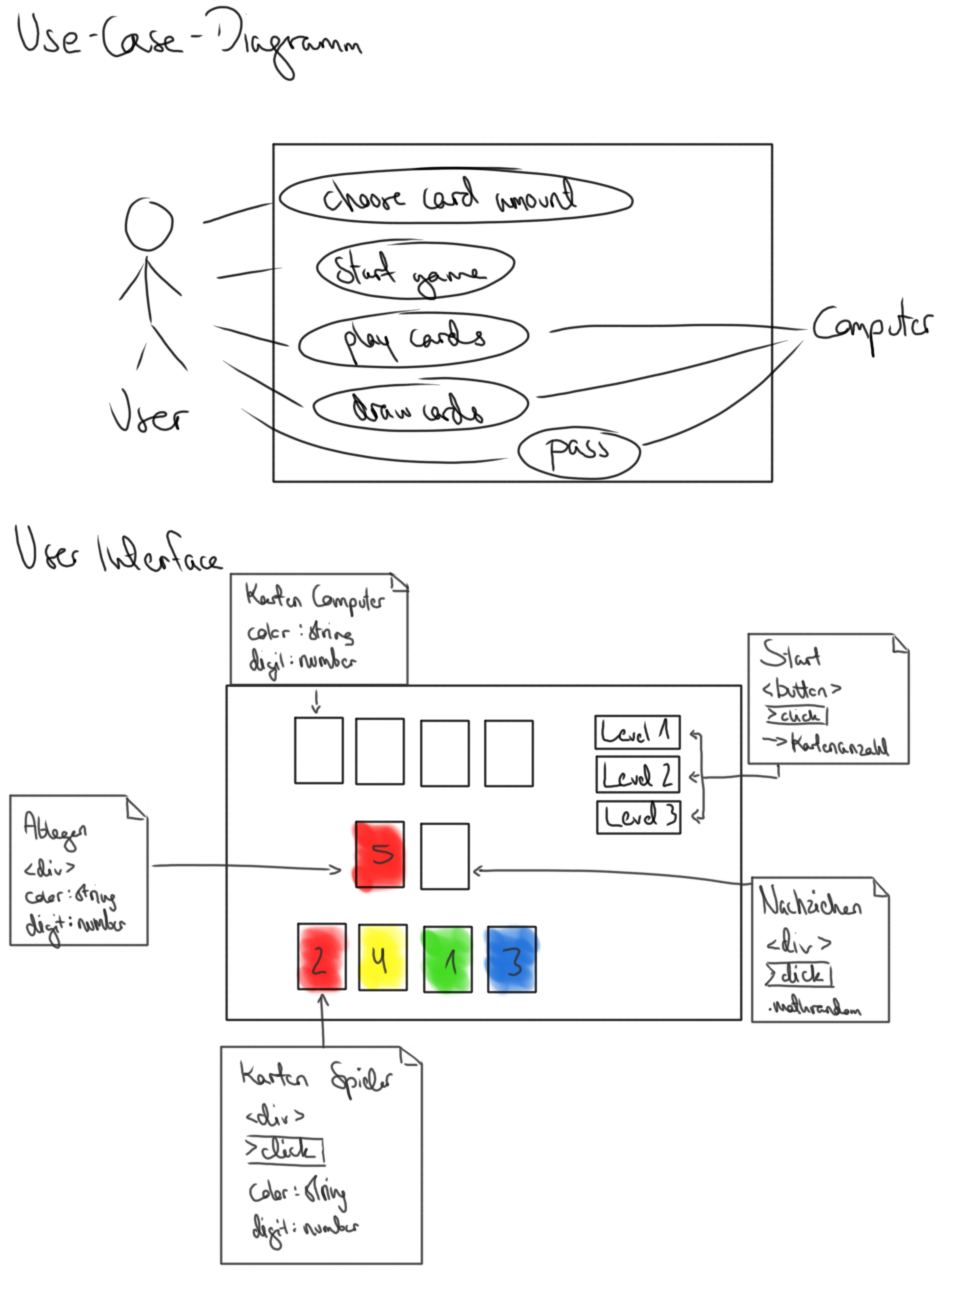 Use-Case-Diagramm
choose card amount
Start game
play cards
Computer
draw cards
User
pass
User Interface
Karten Computer
color : string
digit : number
Start
<button>
>click
→ Kartenanzahl
Level 1
Level 2
Level 3
Ablegen
<div>
color : string
digit : number
5
Nachziehen
<div>
>click
.mathrandom
2
4
1
3
Karten Spieler
<div>
>click
color : string
digit : number